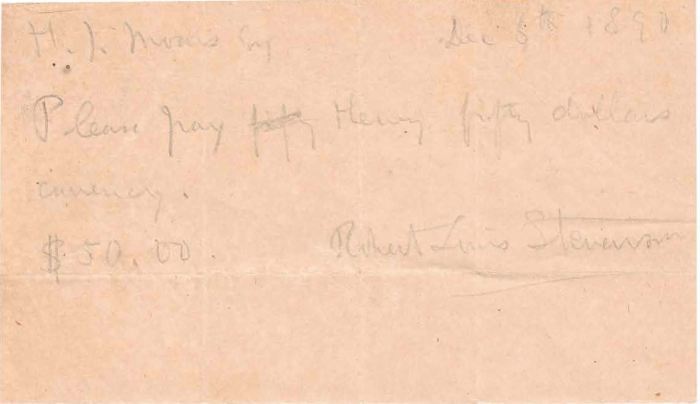 H. J. Moors Esq Dec 5th 1890
Please pay fifty Henry fifty dollars
currency.
$50.00. Robert Louis Stevenson